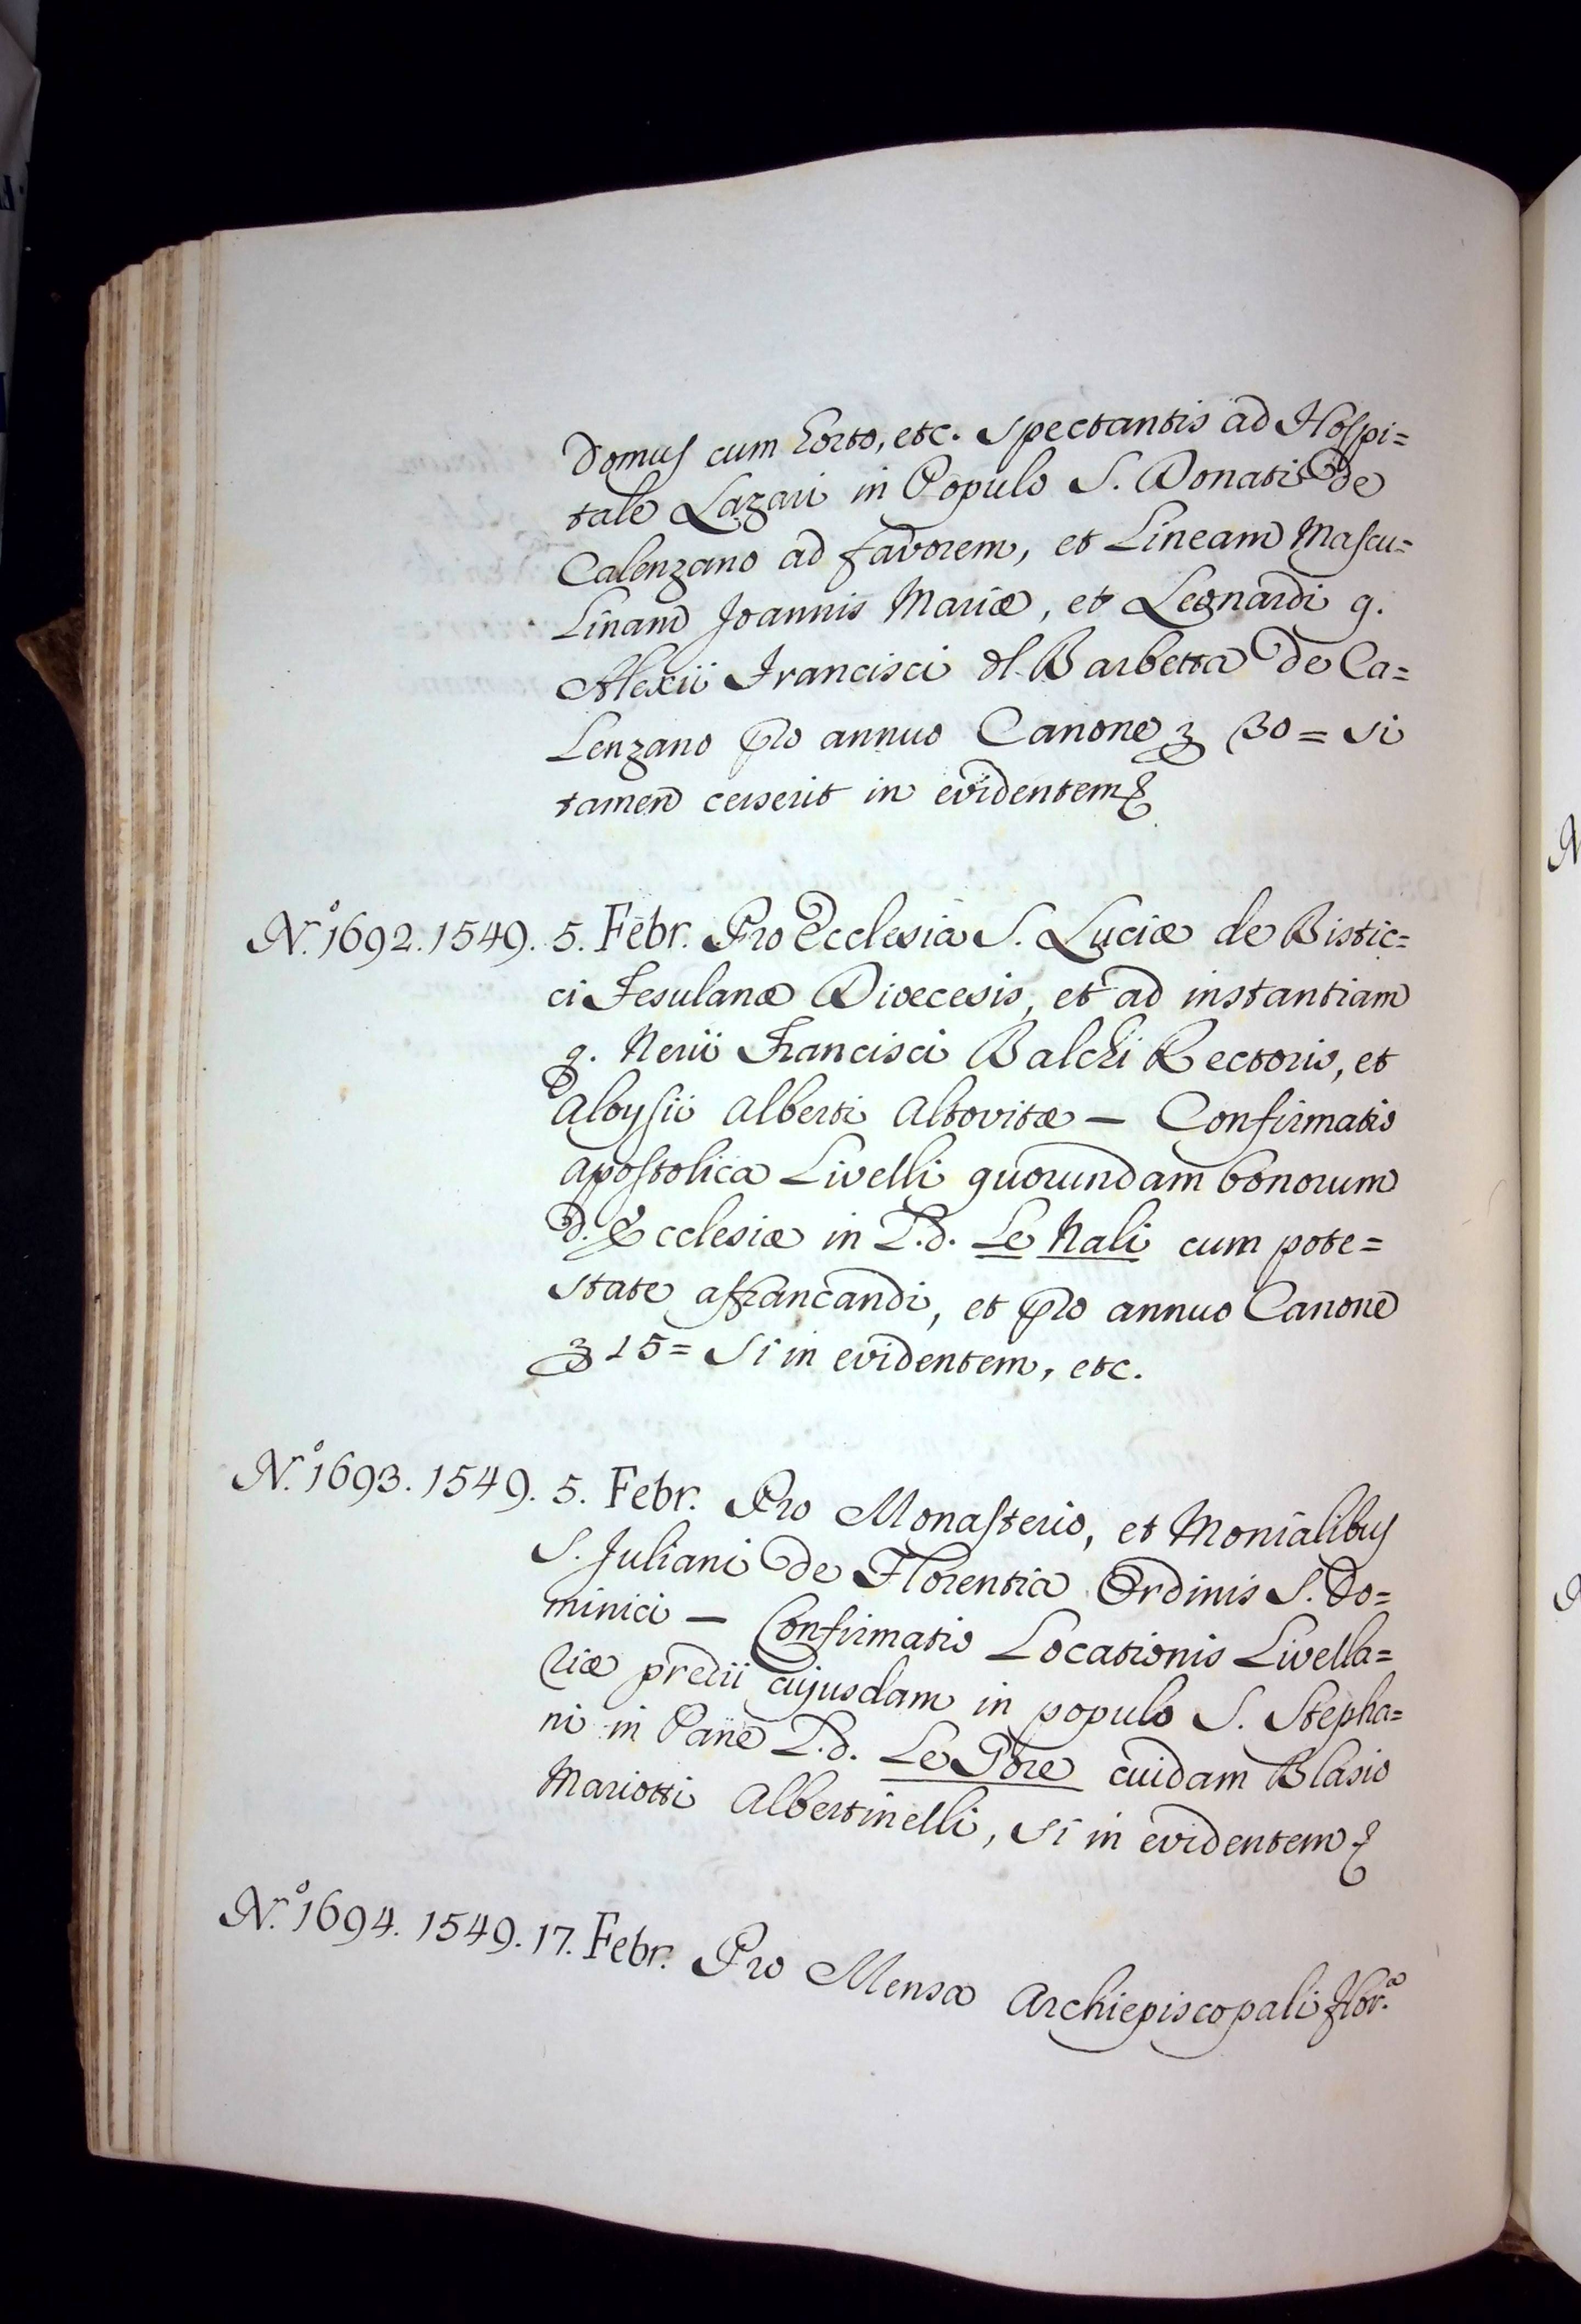 Domus cum horto, etc. spectantis ad Hospi=
tale Lazari in Populo S. Donati de
Calenzano ad favorem, et Lineam Mascu=
Linam Joannis Mariæ, et Leonardi q.
Alexii Francisci del Barbetta de Ca=
Lenzano pro annuo Canone 30 = si
tamen cesserit in evidentem
N.º 1692. 1549. 5. Febr. Pro Ecclesia S. Luciæ de Bistic=
ci Fesulanæ Diœcesis, et ad instantiam
q. Nerii Francisci Balchi Rectoris, et
Aloysii Alberti Altovitæ — Confirmatio
Apostolica Livelli quorundam bonorum
d. Ecclesiæ in L.d. Le Nali cum pote=
state affrancandi, et pro annuo Canone
15 = Si in evidentem, etc.
N.º 1693. 1549. 5. Febr. Pro Monasterio, et Monialibus
S. Juliani de Florentia Ordinis S. Do=
minici — Confirmatio Locationis Livella=
riæ predii cujusdam in populo S. Stepha=
ni in Pane L.d. Le Pore cuidam Blasio
Mariotti Albertinelli, si in evidentem
N.º 1694. 1549. 17. Febr. Pro Mensa Archiepiscopali flor.ª